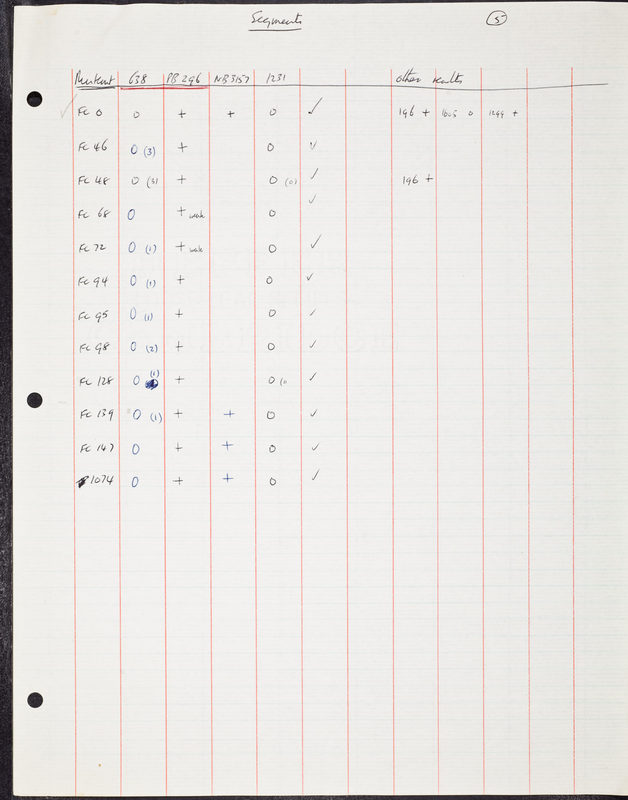 Segments 5
Mutant 638 PB 296 NB 3157 1231 other results
✓ FC 0 0 + + 0 ✓ 196 + 1605 0 1299 +
FC 46 0 (3) + 0 ✓
FC 48 0 (3) + 0 (0) ✓ 196 +
FC 68 0 + weak 0 ✓
FC 72 0 (1) + weak 0 ✓
FC 94 0 (1) + 0 ✓
FC 95 0 (1) + 0 ✓
FC 98 0 (2) + 0 ✓
FC 128 0 (1) + 0 (0 ✓
FC 139 0 (1) + + 0 ✓
FC 147 0 + + 0 ✓
P 1074 0 + + 0 ✓